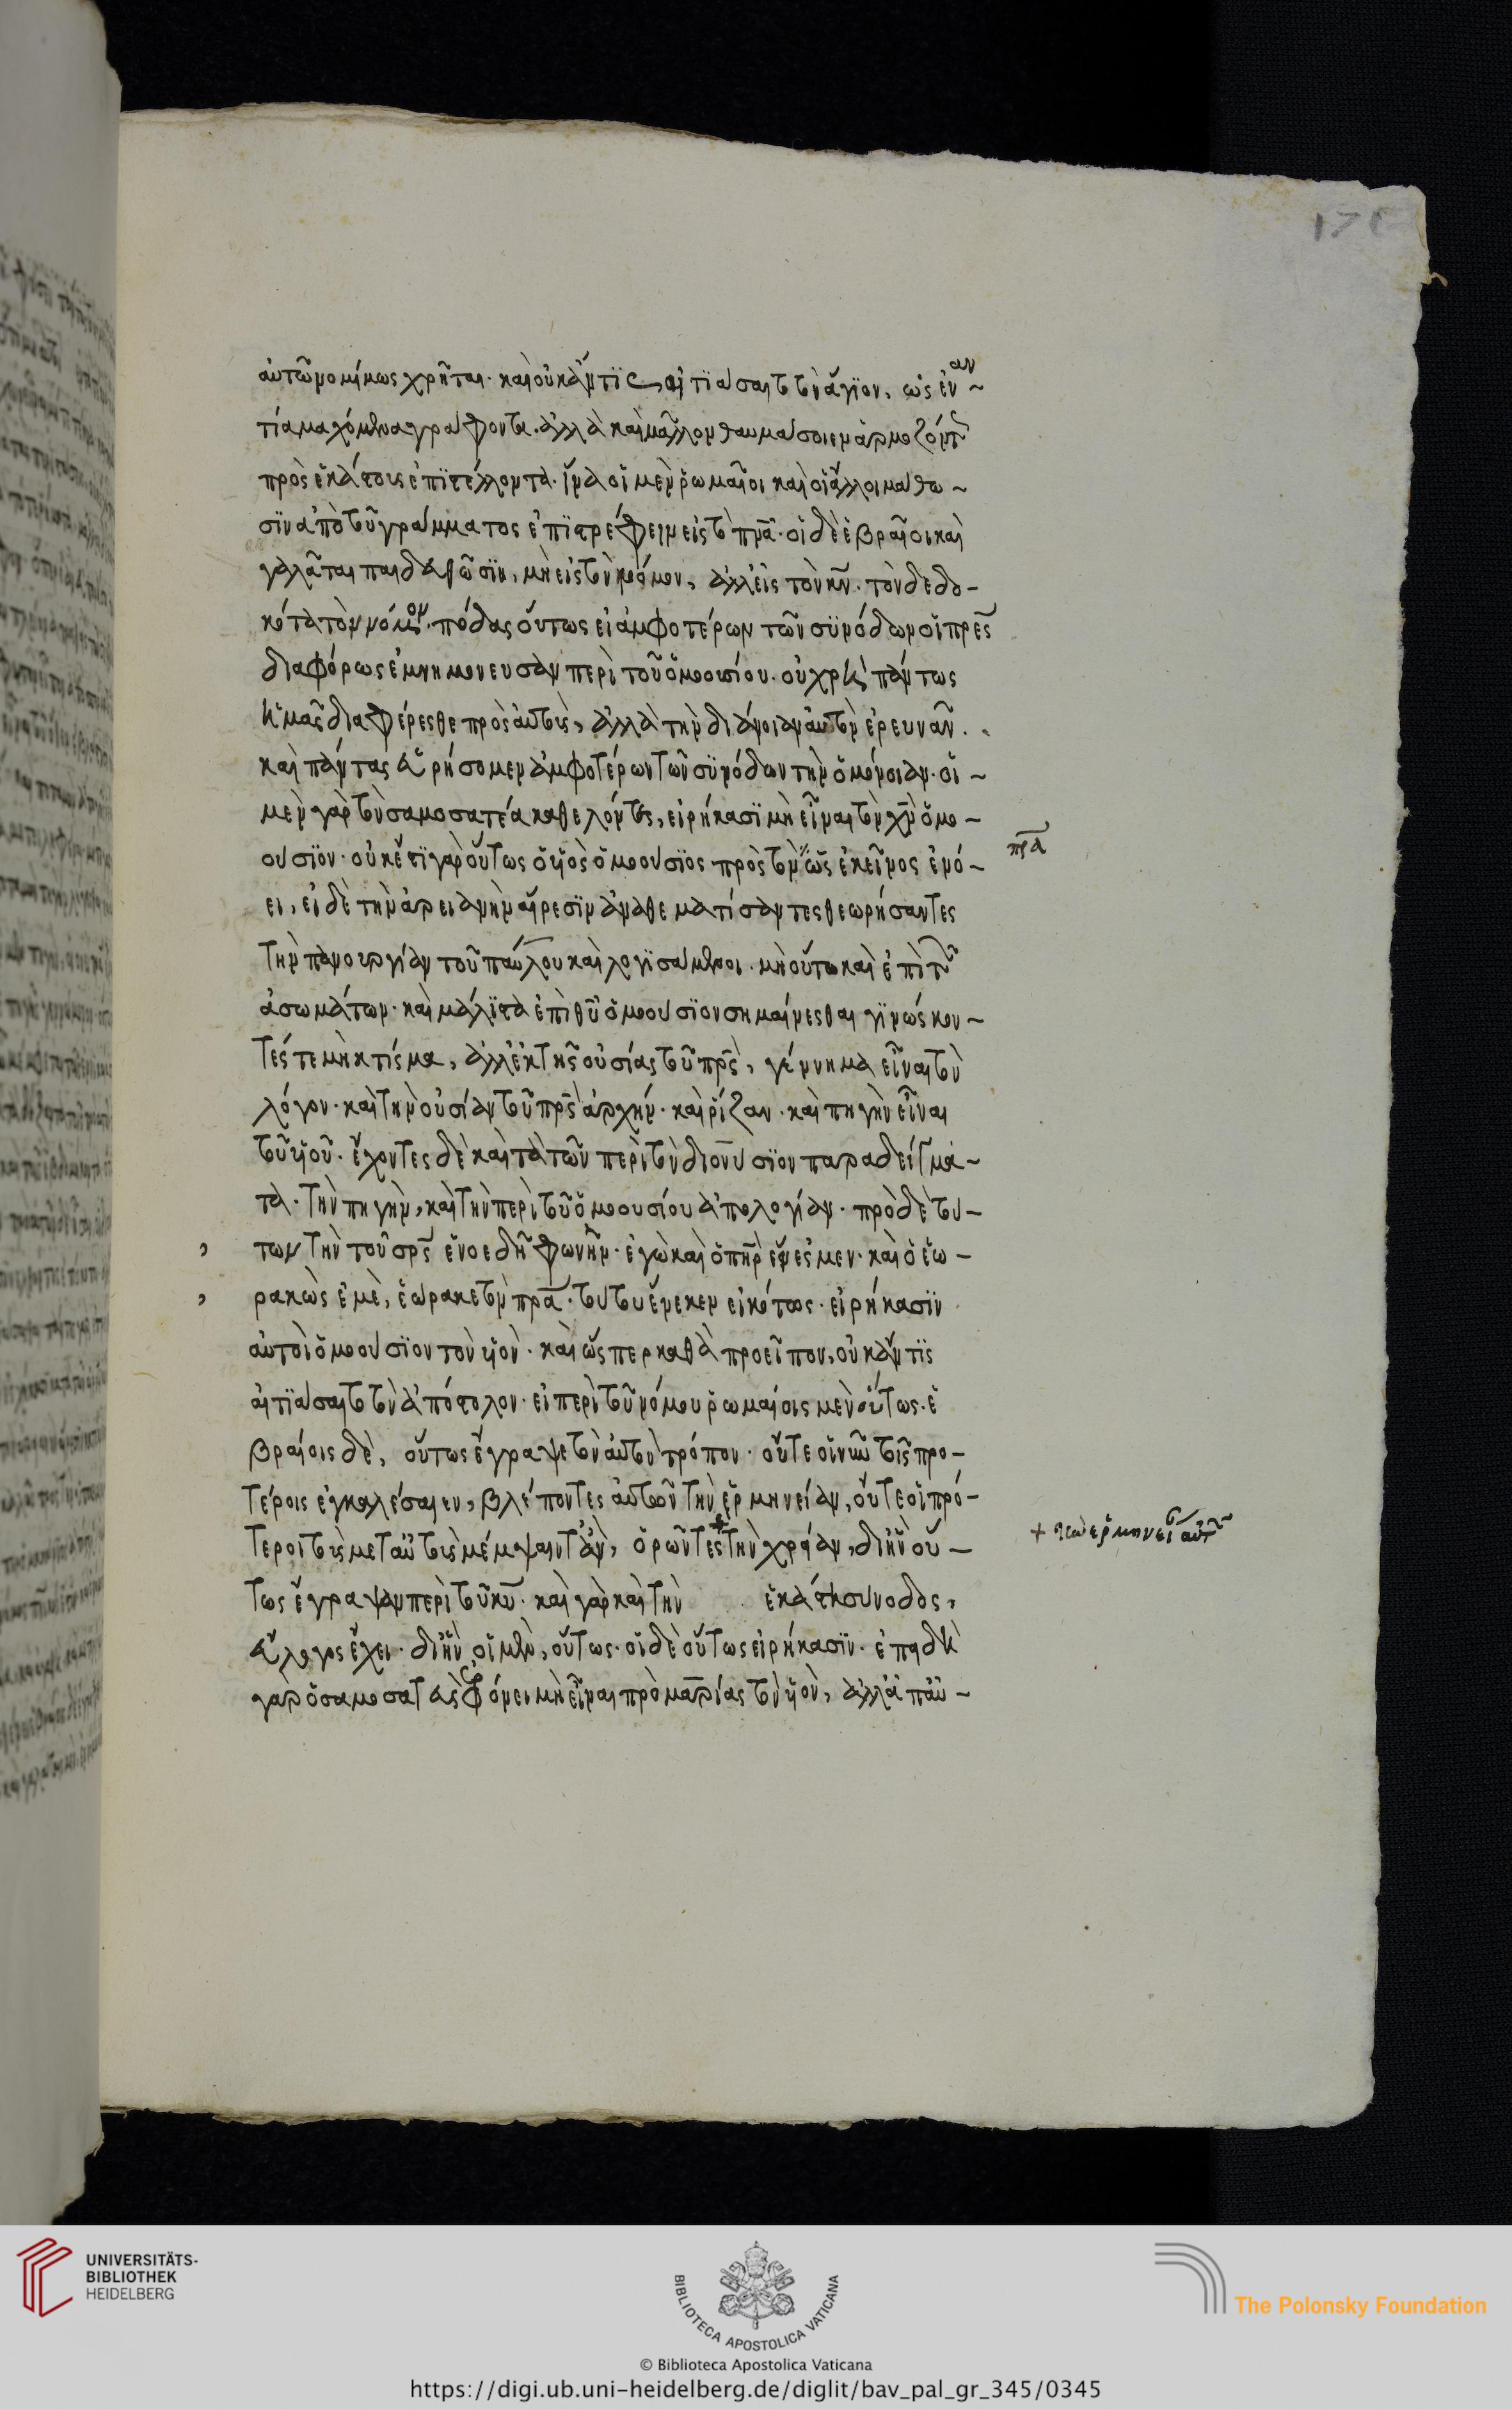 αὐτῶ νομίμως χρῆται· καὶ οὐκ ἄν τις αἰτιάσαιτο τὸν ἅγιον, ὡς ἐναν~
τία μαχόμενα γράφοντα. ἀλλὰ καὶ μᾶλλον θαυμάσοιεν ἁρμοζόντ
πρὸς ἑκάστους ἐπιστέλλοντα· ἵνα οἱ μὲν ῥωμαῖοι καὶ οἱ ἄλλοι μάθω~
σιν ἀπὸ τοῦ γράμματος ἐπιστρέφειν εἰς τὸ πνα· οἱ δὲ ἑβραῖοι καὶ
γαλᾶται παιδευθῶσιν, μὴ εἰς τὸν νόμον, ἀλλ' εἰς τὸν κν· τὸν δεδο-
κότα τὸν νόμον· οὕτως εἰ ἀμφοτέρων τῶν συνόδων οἱ πρες
διαφόρως ἐμνημόνευσαν περὶ τοῦ ὁμοουσίου· οὐ χρὴ πάντως
ἡμᾶς διαφέρεσθε πρὸς αὐτοὺς, ἀλλὰ τὴν διάνοιαν αὐτῶν ἐρευνᾶν.
καὶ πάντας εὑρήσομεν ἀμφοτέρων τῶν συνόδων τὴν ὁμόνοιαν· οἱ ~
μὲν γὰρ τὸν σαμοσατέα καθελόντες, εἰρήκασι μὴ εἶναι τὸν χν ὁμο~
ούσιον· οὐκ ἔτι γὰρ οὕτως ὁ υἱὸς ὁμοούσιος πρὸς τὸν ὡς ἐκεῖνος ἐνό-
πρα
ει, εἰ δὲ τὴν ἀρειανὴν αἵρεσιν ἀναθεματίσαντες θεωρήσαντες
τὴν πανουργίαν τοῦ παύλου καὶ λογισάμενοι· μὴ οὕτω καὶ ἐπὶ τῶν
ἀσωμάτων· καὶ μάλιστα ἐπὶ θυ ὁμοούσιον σημαίνεσθαι γινώσκον~
τές τε μὴ κτίσμα, ἀλλ' ἐκ τῆς οὐσίας τοῦ πρς, γέννημα εἶναι τὸν
λόγον· καὶ τὴν οὐσίαν τοῦ πρς ἀρχὴν· καὶ ῥίζαν· καὶ πηγὴν εἶναι
τοῦ υἱοῦ· ἔχοντες δὲ καὶ τὰ τῶν περὶ τὸν διονύσιον παραδείγμα~
τα· τὴν πηγὴν, καὶ τὴν περὶ τοῦ ὁμοουσίου ἀπολογίαν· πρὸ δὲ τού-
των τὴν τοῦ σρς ἑνοειδῆ φωνὴν· ἐγὼ καὶ ὁ πηρ ἕν ἐσμεν· καὶ ὁ ἑω-
ρακὼς ἐμὲ, ἑώρακε τὸν πρα· τούτου ἕνεκεν εἰκότως· εἰρήκασιν
αὐτοὶ ὁμοούσιον τὸν υἱὸν· καὶ ὥσπερ καθὰ προεῖπον, οὐκ ἄν τις
αἰτιάσαιτο τὸν ἀπόστολον· εἰ περὶ τοῦ νόμου ῥωμαίοις μὲν οὕτως· ἑ
βραίοις δὲ, οὕτως ἔγραψε τὸν αὐτὸν τρόπον· οὔτε οἱ νῦν τοῖς προ-
τέροις ἐγκαλέσαιεν, βλέποντες αὐτῶν τὴν ἑρμηνείαν, οὔτε οἱ πρό-
τεροι τοὺς μετ' αὐτοὺς μέμψαιντ' ἂν, ὁρῶντες + τὴν χρείαν, δι' ἣν οὕ-
+ τὴν ἑρμηνεί αὐτ
τως ἔγραψαν περὶ τοῦ κυ· καὶ γὰρ καὶ τὴν ἑκάστη σύνοδος,
εὔλογος ἔχει· δι' ἣν οἱ μὲν, οὕτως· οἱ δὲ οὕτως εἰρήκασιν· ἐπειδὴ
γὰρ ὁ σαμοσατεὺς ἐφρόνει μὴ εἶναι πρὸ μαρίας τὸν υἱὸν, ἀλλ' ἀπ' αὐ~
UNIVERSITÄTS-
BIBLIOTHEK
HEIDELBERG
BIBLIOTECA APOSTOLICA VATICANA
The Polonsky Foundation
© Biblioteca Apostolica Vaticana
https://digi.ub.uni-heidelberg.de/diglit/bav_pal_gr_345/0345